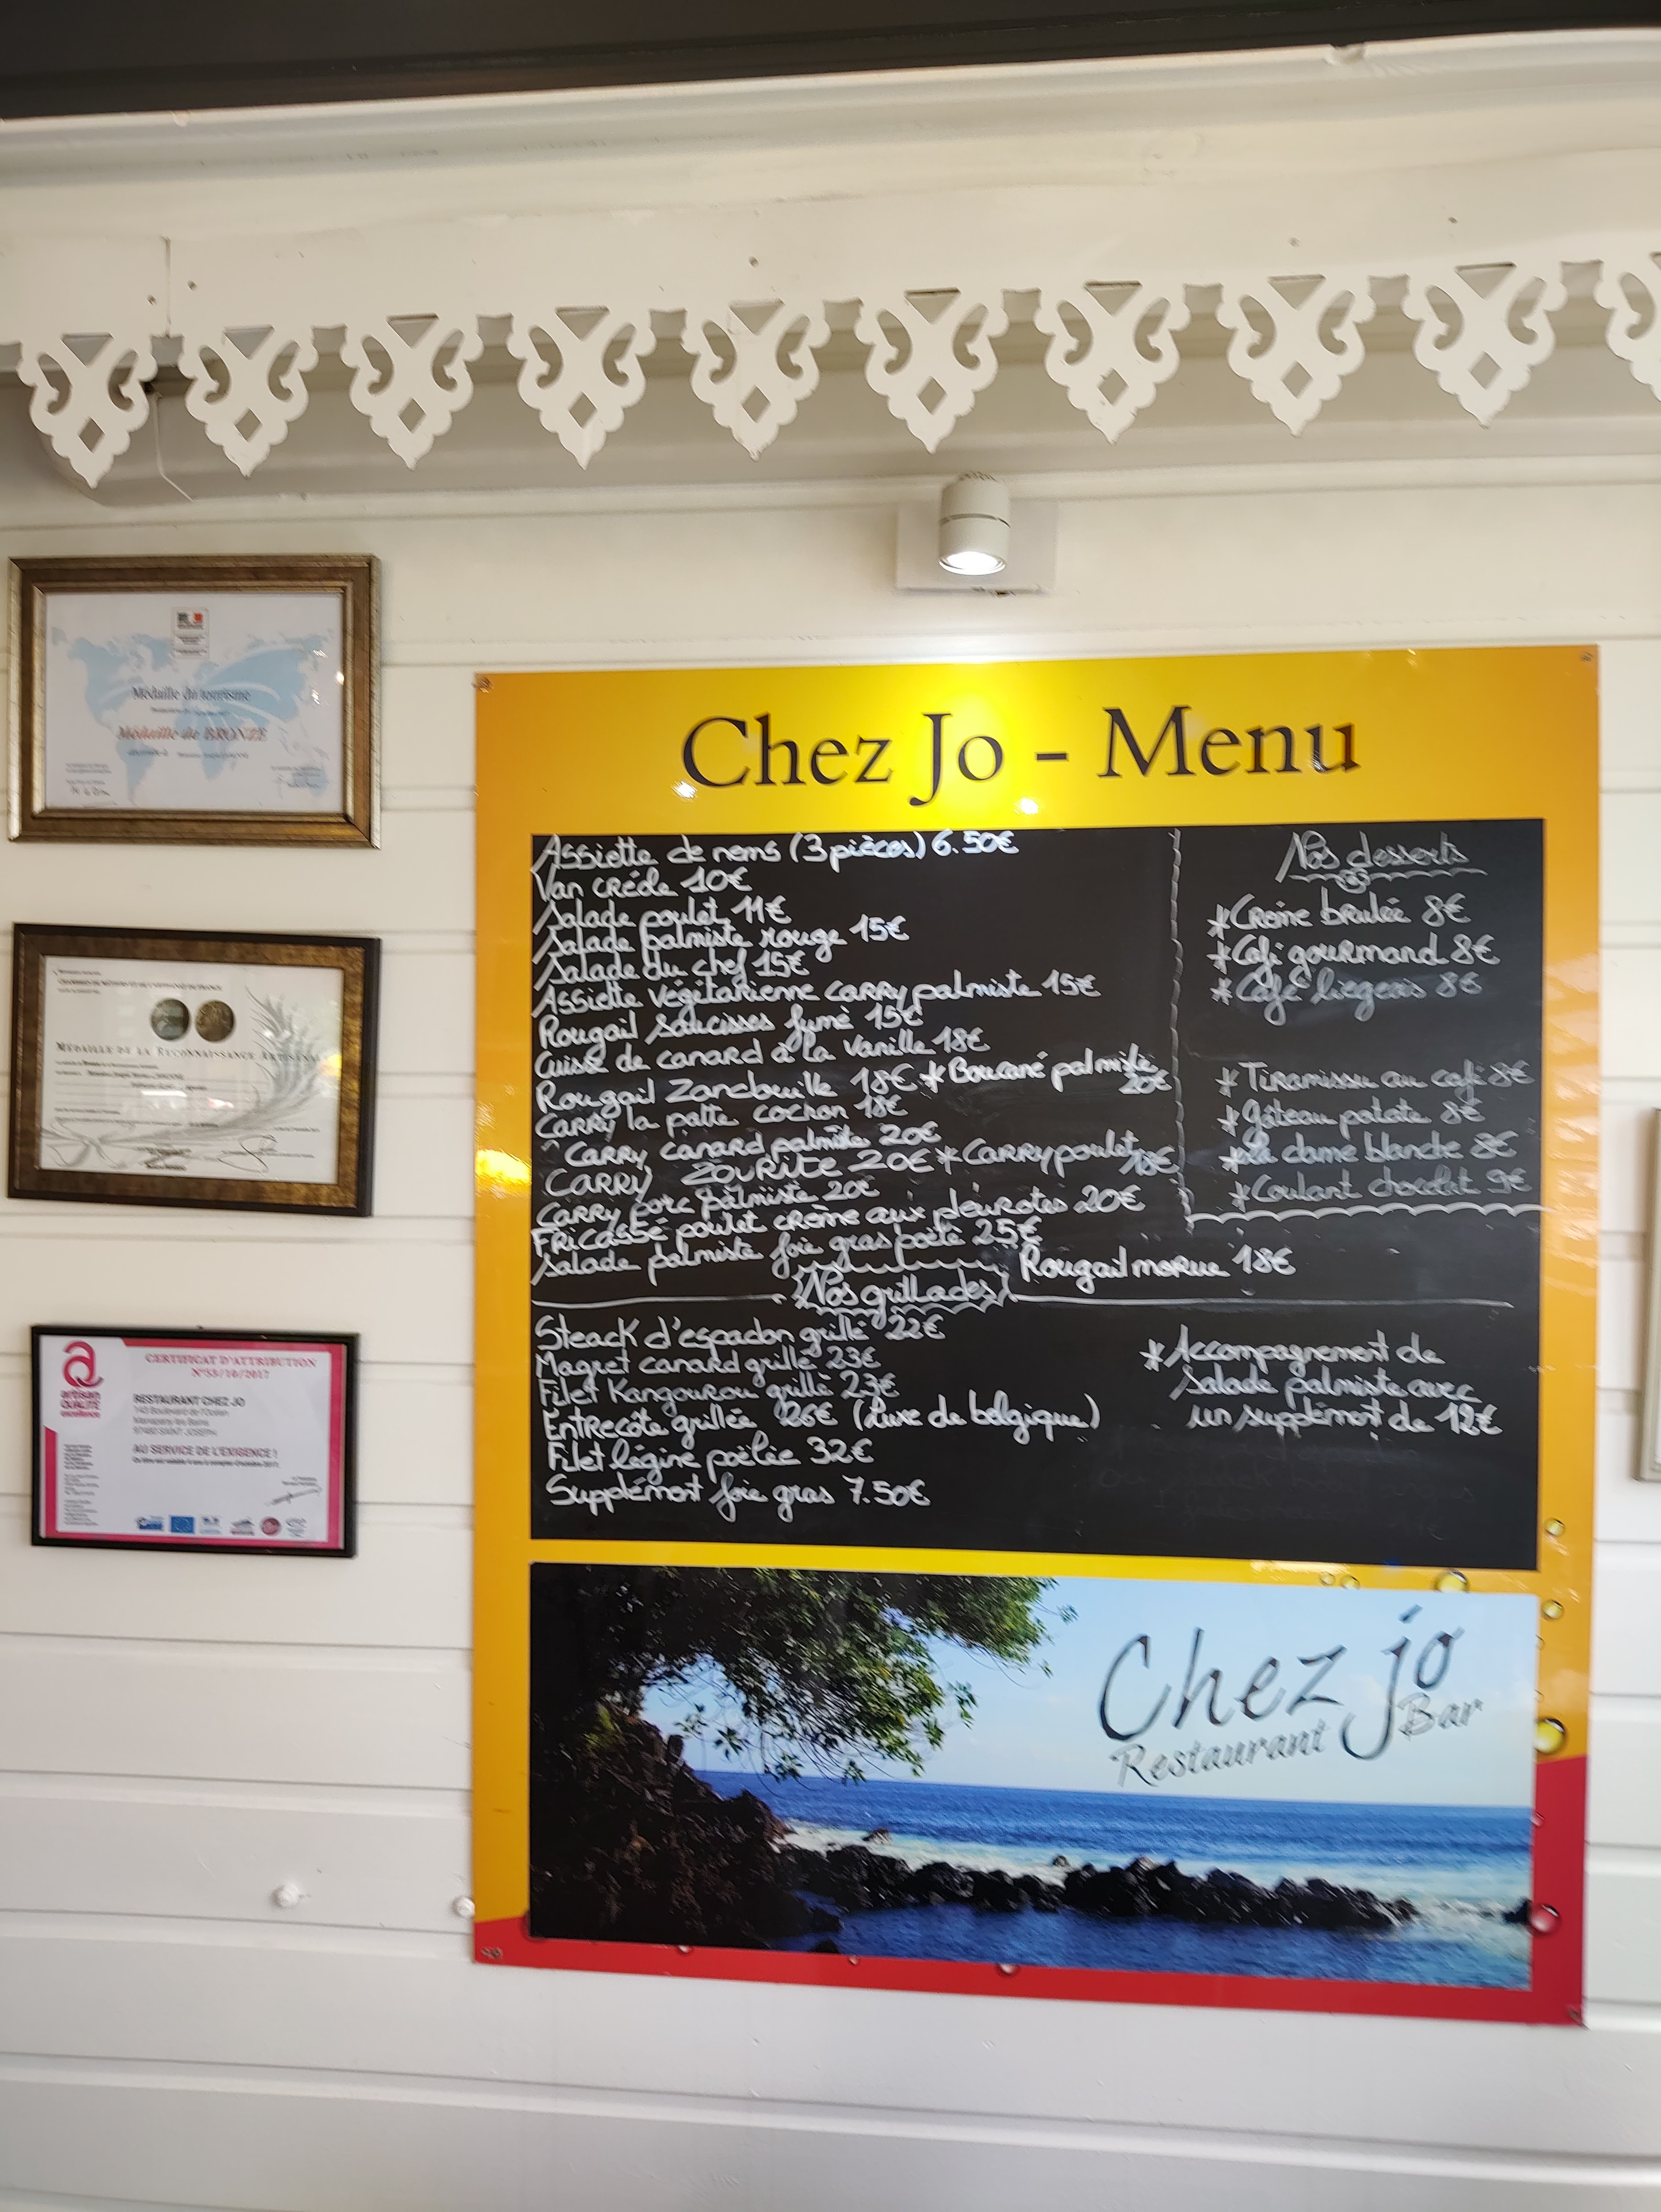 Médaille du tourisme
Médaille de BRONZE
MÉDAILLE DE LA RECONNAISSANCE ARTISANALE
artisan
QUALITÉ
excellence
CERTIFICAT D'ATTRIBUTION
N°53/10/2017
RESTAURANT CHEZ JO
143 Boulevard de l'Océan
Manapany les Bains
97480 SAINT JOSEPH
AU SERVICE DE L'EXIGENCE !
Chez Jo - Menu
Assiette de nems (3 pièces) 6.50€
Van créole 10€
Salade poulet 11€
Salade palmiste rouge 15€
Salade du chef 15€
Assiette végétarienne carry palmiste 15€
Rougail saucisses fumé 15€
Cuisse de canard à la vanille 18€
Rougail Zandouille 18€ * Boucané palmiste
20€
Carry la patte cochon 18€
Carry canard palmiste 20€
CARRY ZOURITE 20€ * Carry poulet 18€
Carry porc palmiste 20€
Fricassé poulet crème aux pleurotes 20€
Salade palmiste foie gras poêlé 25€
Rougail morue 18€
Nos desserts
* Crème brulée 8€
* Café gourmand 8€
* Café liegeois 8€
* Tiramissu au café 8€
* Gâteau patate 8€
* La dame blanche 8€
* Coulant chocolat 9€
Nos grillades
Steack d'espadon grillé 22€
Magret canard grillé 23€
Filet Kangourou grillé 23€
Entrecôte grillée 26€ (Luxe de belgique)
Filet légine poêlée 32€
Supplément foie gras 7.50€
* Accompagnement de
salade palmiste avec
un supplément de 12€
Chez jo
Restaurant Bar